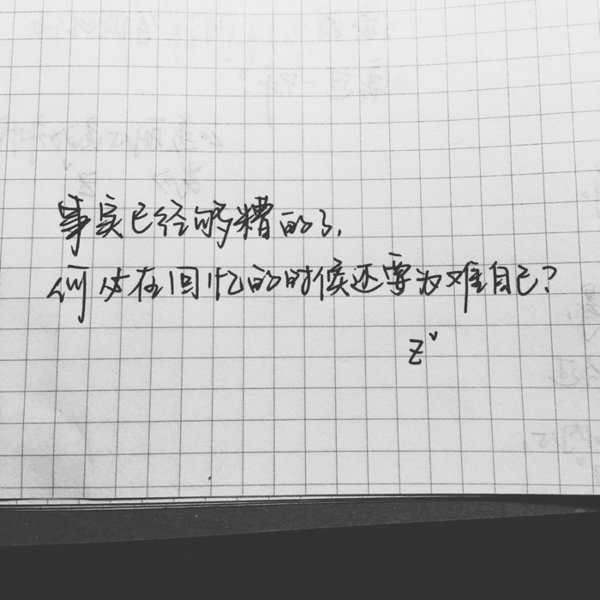 事实已经够糟的了，
何必在回忆的时候还要为难自己？
Z